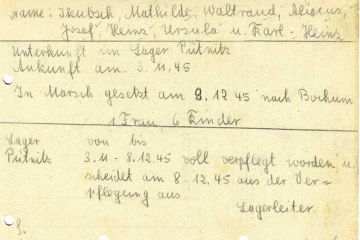 Name: Skubsch, Mathilde, Waltraud, Aloisius,
Josef, Heinz, Ursula u. Karl-Heinz
Unterkunft im Lager Pütnitz
Ankunft am 3.11.45
In Marsch gesetzt am 8.12.45 nach Bochum
1 Frau, 6 Kinder
Lager von bis
Pütnitz 3.11 - 8.12.45 voll verpflegt worden u.
scheidet am 8.12.45 aus der Ver-
pflegung aus
Lagerleiter.